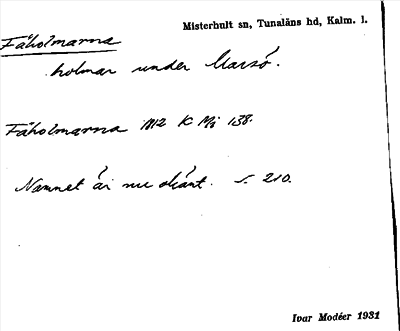 Misterhult sn, Tunaläns hd, Kalm. l.
Fåholmarna
holmar under Marsö.
Fåholmarna 1812 K 138.
Namnet är nu okänt. s. 210.
Ivar Modéer 1931